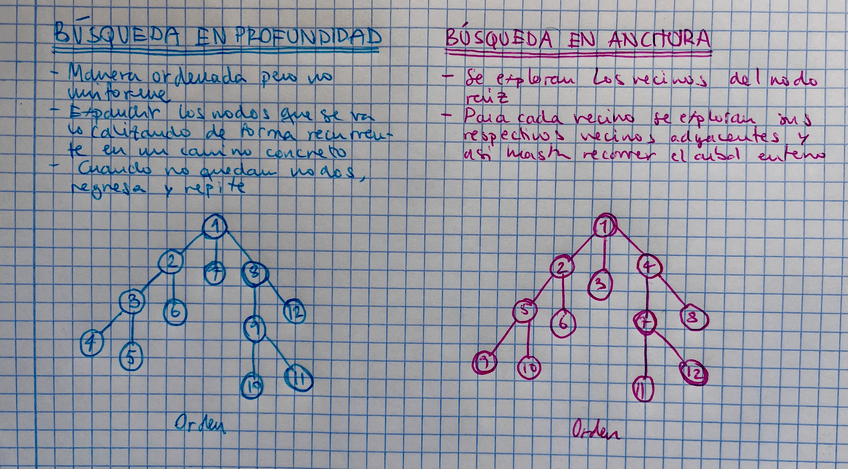 BÚSQUEDA EN PROFUNDIDAD
- Manera ordenada pero no
uniforme
- Expandir los nodos que se va
localizando de forma recurren-
te en un camino concreto
- Cuando no quedan nodos,
regresa y repite
1
2 7 8
3 6 9 12
4 5 10 11
Orden
BÚSQUEDA EN ANCHURA
- Se exploran los vecinos del nodo
raiz
- Para cada vecino se exploran sus
respectivos vecinos adyacentes y
asi hasta recorrer el arbol entero
1
2 3 4
5 6 7 8
9 10 11 12
Orden